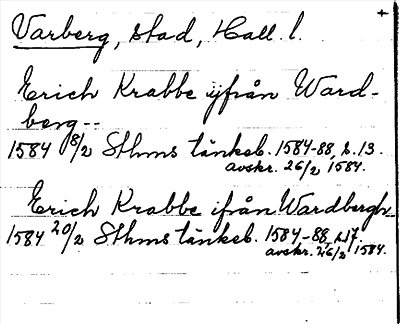 +
Varberg, stad, Hall. l.
Erich Krabbe ifrån Ward-
berg--
1584 8/2 Sthms tänkeb. 1584-88, s. 13.
avskr. 26/2 1584.
Erich Krabbe ifrån Wardbergh
1584 20/2 Sthms tänkeb. 1584-88, s. 17.
avskr. 26/2 1584.